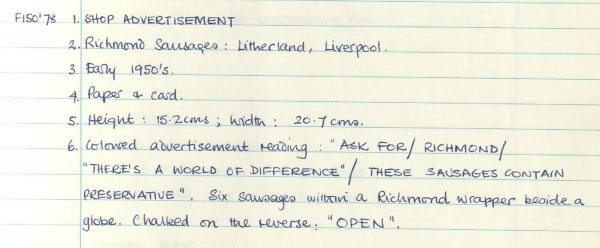 F150'78 1. SHOP ADVERTISEMENT
2. Richmond Sausages: Litherland, Liverpool.
3. Early 1950's.
4. Paper & card.
5. Height: 15.2cms; Width: 20.7cms.
6. Colored advertisement reading: "ASK FOR/ RICHMOND/
"THERE'S A WORLD OF DIFFERENCE"/ THESE SAUSAGES CONTAIN
PRESERVATIVE". Six sausages within a Richmond wrapper beside a
globe. Chalked on the reverse: "OPEN".